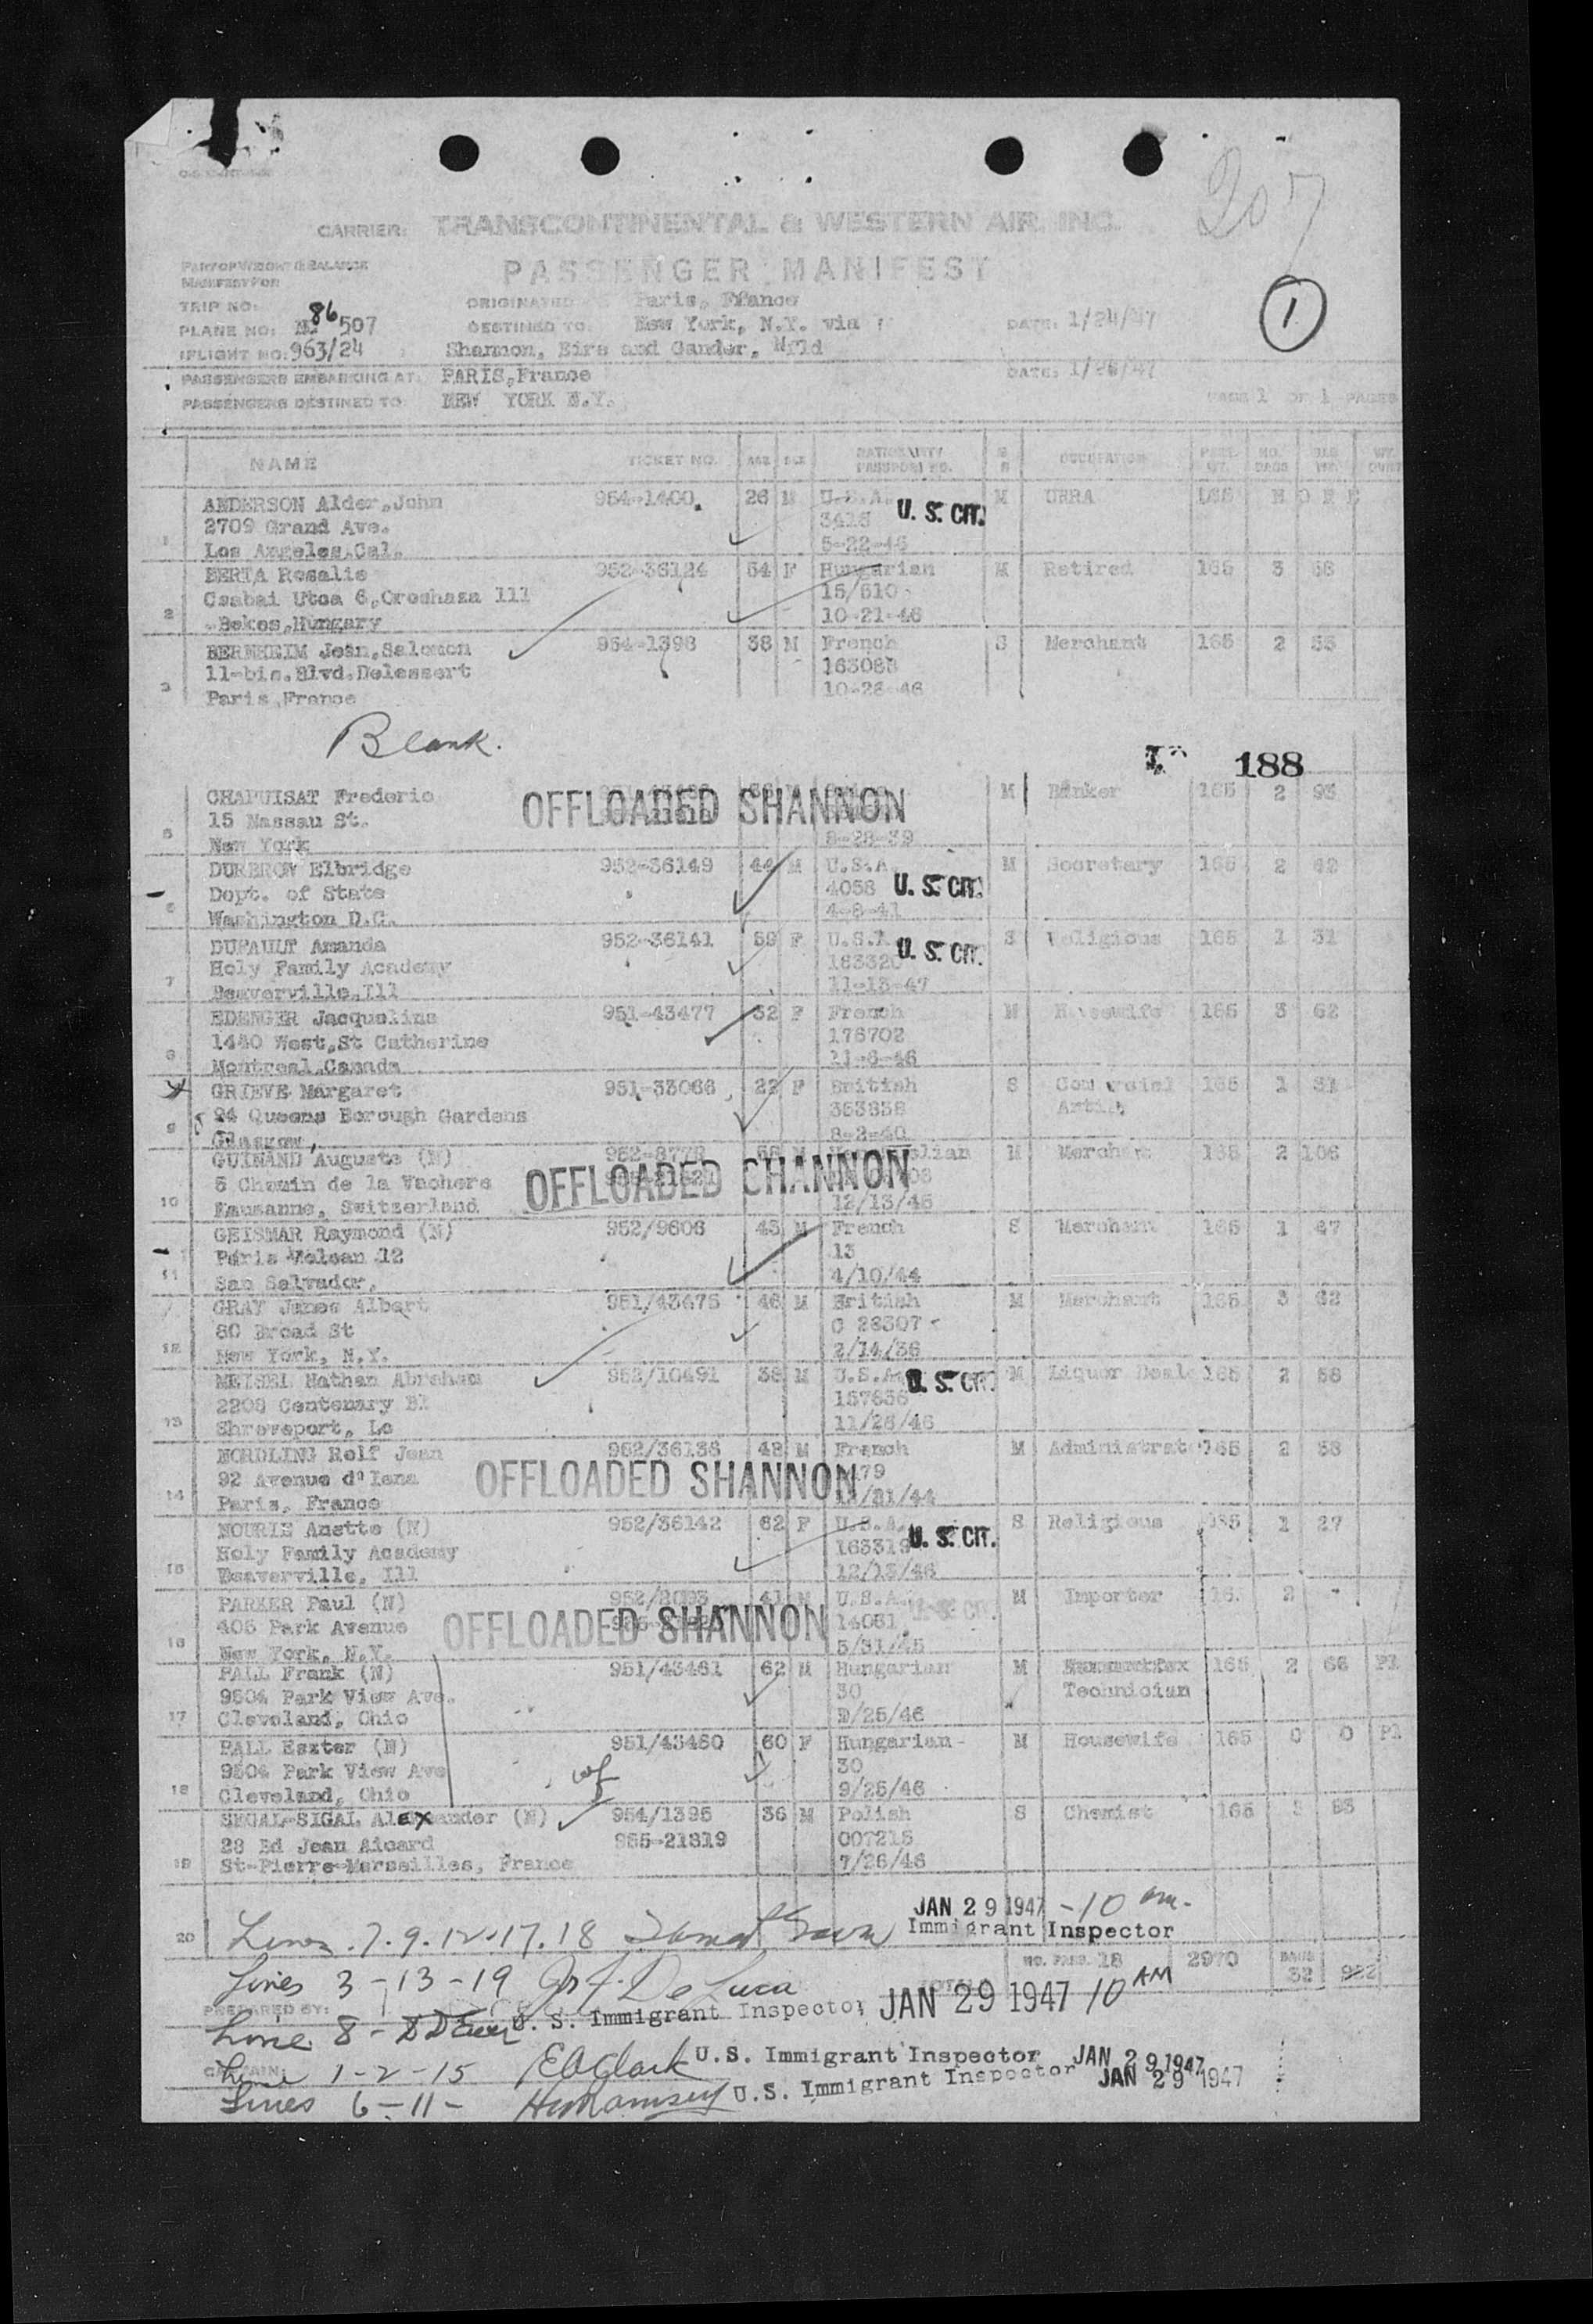 207
CARRIER: TRANSCONTINENTAL & WESTERN AIR, INC.
PASSENGER MANIFEST
PART OF WEIGHT & BALANCE
MANIFEST FOR
1
TRIP NO: ORIGINATED Paris, Ffance
PLANE NO: 86 507 DESTINED TO: New York, N.Y. via DATE: 1/24/47
FLIGHT NO: 963/24 Shannon, Eire and Gander, Nfld
PASSENGERS EMBARKING AT: PARIS, France DATE: 1/26/47
PASSENGERS DESTINED TO: NEW YORK N.Y. PAGE 1 OF 1 PAGES
NAME TICKET NO. AGE SEX NATIONALITY PASSPORT NO. OCCUPATION NO. BAGS
ANDERSON Alder, John 954-1400 26 M U.S.A. U.S. CIT. M URRA 165 N O N E
2709 Grand Ave. 3415
1 Los Angeles, Cal. 5-22-46
BERTA Rosalie 952-36124 54 F Hungarian M Retired 165 3 58
Csabai Utca 6, Oroshaza 111 15/510
2 Bekes, Hungary 10-21-46
BERNHEIM Jean, Salomon 954-1398 38 M French S Merchant 165 2 55
11-bis. Blvd. Delessert 163088
3 Paris, France 10-26-46
Blank.
188
CHAPUISAT Frederic OFFLOADED SHANNON M Banker 165 2 93
15 Nassau St.
5 New York 8-28-39
DURBROW Elbridge 952-36149 44 M U.S.A. M Secretary 165 2 42
Dept. of State 4058 U.S. CIT.
6 Washington D.C. 4-8-41
DUPAULT Amanda 952-36141 59 F U.S.A. U.S. CIT. S Religious 165 1 31
Holy Family Academy 163320
7 Beaverville, Ill 11-13-47
EDENGER Jacqueline 951-43477 32 F French M Housewife 165 3 62
1440 West, St Catherine 176702
8 Montreal, Canada 11-6-46
GRIEVE Margaret 951-33066 22 F British S Commercial 165 1 31
94 Queens Borough Gardens 353838 Artist
9 Glasgow, 8-2-40
GUINAND Auguste (N) 952-8778 M Merchant 165 2 106
5 Chemin de la Vachere OFFLOADED SHANNON
10 Lausanne, Switzerland 12/13/45
GEISMAR Raymond (N) 952/9606 45 M French S Merchant 165 1 47
Paris Volcan 12 13
11 San Salvador, 4/10/44
GRAY James Albert 951/43475 46 M British M Merchant 165 3 62
80 Broad St C 28307
12 New York, N.Y. 2/14/36
MEISEL Nathan Abraham 952/10491 38 M U.S.A. U.S. CIT. M Liquor Deale 165 2 58
2208 Centenary Bl 157656
13 Shreveport, La 11/26/46
NORDLING Rolf Jean 952/36136 48 M French M Administrat 165 2 58
92 Avenue d'Iena OFFLOADED SHANNON 179
14 Paris, France /31/44
NOURIE Anette (N) 952/36142 62 F U.S.A. S Religious 165 1 27
Holy Family Academy 163319 U.S. CIT.
15 Beaverville, Ill 12/13/46
PARKER Paul (N) 41 M U.S.A. M Importer 16. 2 -
405 Park Avenue OFFLOADED SHANNON 14081
16 New York, N.Y. 5/31/45
PALL Frank (N) 951/43461 62 M Hungarian M 165 2 66 Pl
9504 Park View Ave. 30 Technician
17 Cleveland, Ohio 9/25/46
PALL Eszter (N) 951/43460 60 F Hungarian M Housewife 165 0 0 Pl
9504 Park View Ave 30
18 Cleveland, Ohio 9/25/46
SEGAL-SIGAL Alexander (N) 954/1395 36 M Polish S Chemist 165 55
28 Bd Jean Aicard 955-21819 007215
19 St-Pierre-Marseilles, France 7/26/46
JAN 29 1947 - 10 am.
20 Lines. 7. 9. 12. 17. 18 Immigrant Inspector
NO. PASS. 18 2970 BAGS 32 922
Lines 3 - 13 - 19 De Luca
U. S. Immigrant Inspector JAN 29 1947 10 AM
PREPARED BY:
Line 8 -
CAPTAIN:
Line 1-2-15 EAClark U.S. Immigrant Inspector JAN 29 1947
Lines 6-11- HWRamsey U.S. Immigrant Inspector JAN 29 1947